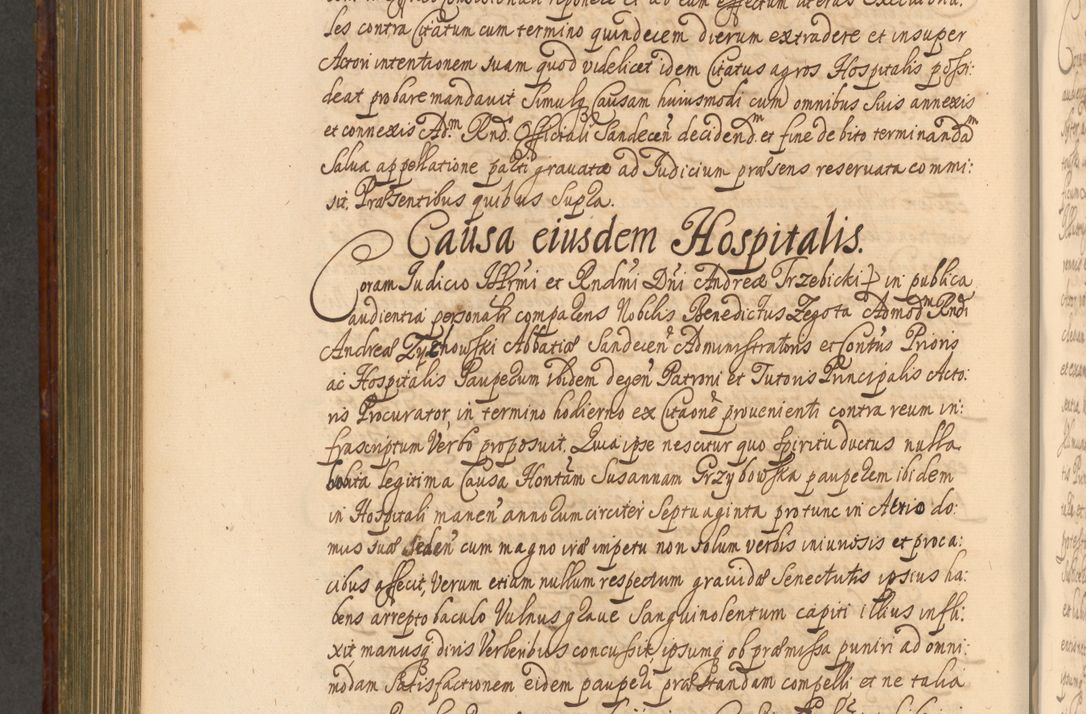 les contra Citatum cum termino quindecem dierum extradere et insuper
Actori intentionem suam quod videlicet idem Citatus agros Hospitalis possi:
deat probare mandauit Simulq Causam huiusmodi cum omnibus suis annexis
et connexis Ad.m Rnd. Officiali Sandecen decidend.m et fine debito terminanda.m
Salua appellatione parti grauatæ ad Iudicium præsens reseruata commi:
sit, Præsentibus quibus Supra.
Causa eiusdem Hospitalis.
Coram Iudicio Illrmi et Rndmi Dni Andreæ Trzebicki in publica
audientia personalr comparens Nobilis Benedictus Zegota Admod.m Rndi
Andreæ Abbatiæ Sandecen Administratoris et Prioris
ac Hospitalis Pauperum ibidem degen Patroni et Tutoris Principalis Acto:
ris Procurator, in termino hodierno ex Citaone prouenienti contra reum in:
frascriptum Verbo proposuit, Quia ipse nescitur quo spiritu ductus nulla
habita legitima Causa Hontam Susannam Grzybowska pauperem ibidem
in Hospitali manen annorum circiter Septuaginta pro tunc in Atrio do:
mus suæ seden cum magno iræ impetu non solum verbis iniuriosis et proca:
cibus affecit, Verum etiam nullum respectum grauidæ Senectutis ipsius ha:
bens arrepto baculo Vulnus graue Sanguinolentum capiti illius infli:
xit manusq diris Verberibus concussit, ipsumq ob præmissa puniri ad omni:
modam Satisfactionem eidem pauperi præstandam compelli et ne talia